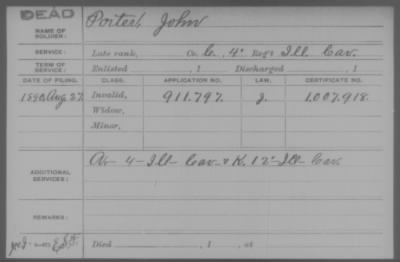 DEAD
NAME OF SOLDIER: Porter, John
SERVICE: Late rank, Co. C, 4" Reg't Ill Cav.
TERM OF SERVICE: Enlisted , 1 Discharged , 1
DATE OF FILING. CLASS. APPLICATION NO. LAW. CERTIFICATE NO.
1890 Aug 27. Invalid, 911.797. J. 1,007.918.
Widow,
Minor,
ADDITIONAL SERVICES: 4 - Ill Cav & K. 12" Ill Cav
REMARKS:
Died , 1 , at